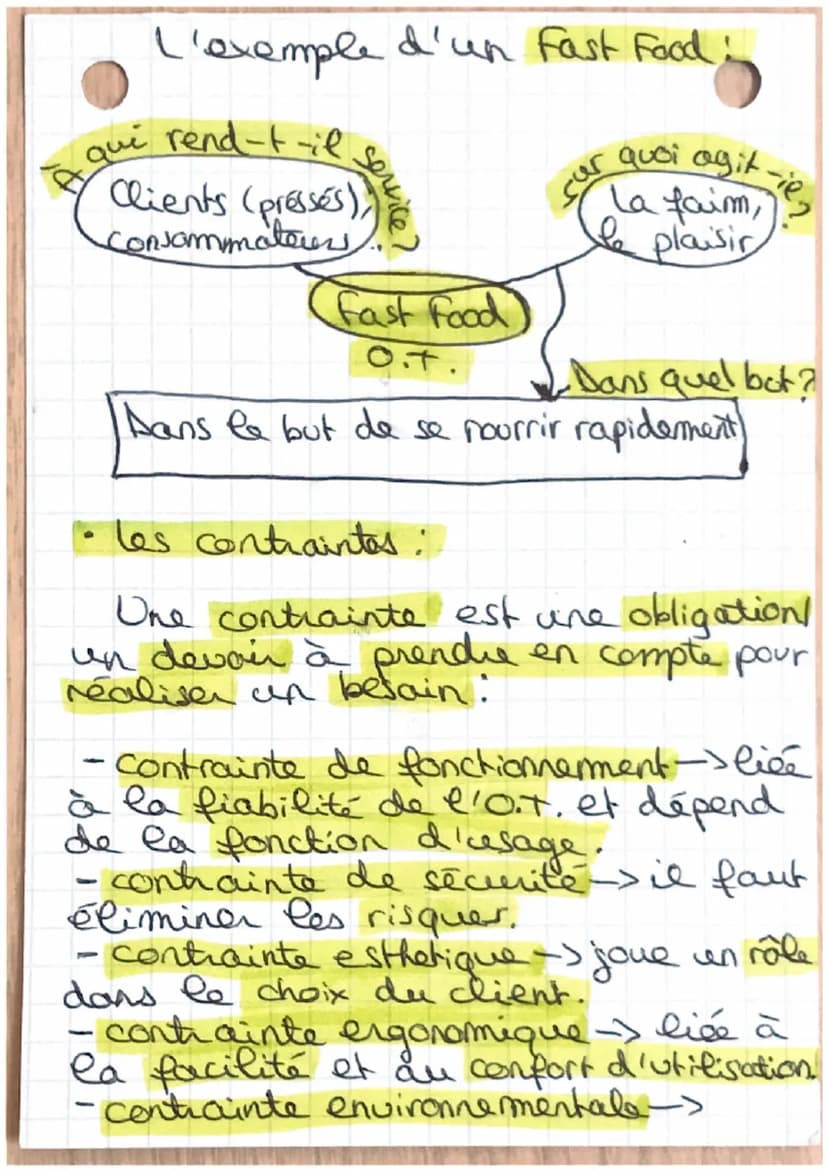 L'exemple d'un Fast Food :
À qui rend-t-il service ?
Clients (pressés),
consommateurs...
sur quoi agit-il ?
La faim,
le plaisir
Fast Food
O.T.
Dans quel but ?
Dans le but de se nourrir rapidement
• Les contraintes :
Une contrainte est une obligation
un devoir à prendre en compte pour
réaliser un besoin :
- contrainte de fonctionnement -> liée
à la fiabilité de l'O.T. et dépend
de la fonction d'usage.
- contrainte de sécurité -> il faut
éliminer les risques.
- contrainte esthetique -> joue un rôle
dans le choix du client.
- contrainte ergonomique -> liée à
la facilité et au confort d'utilisation
- contrainte environnementale ->